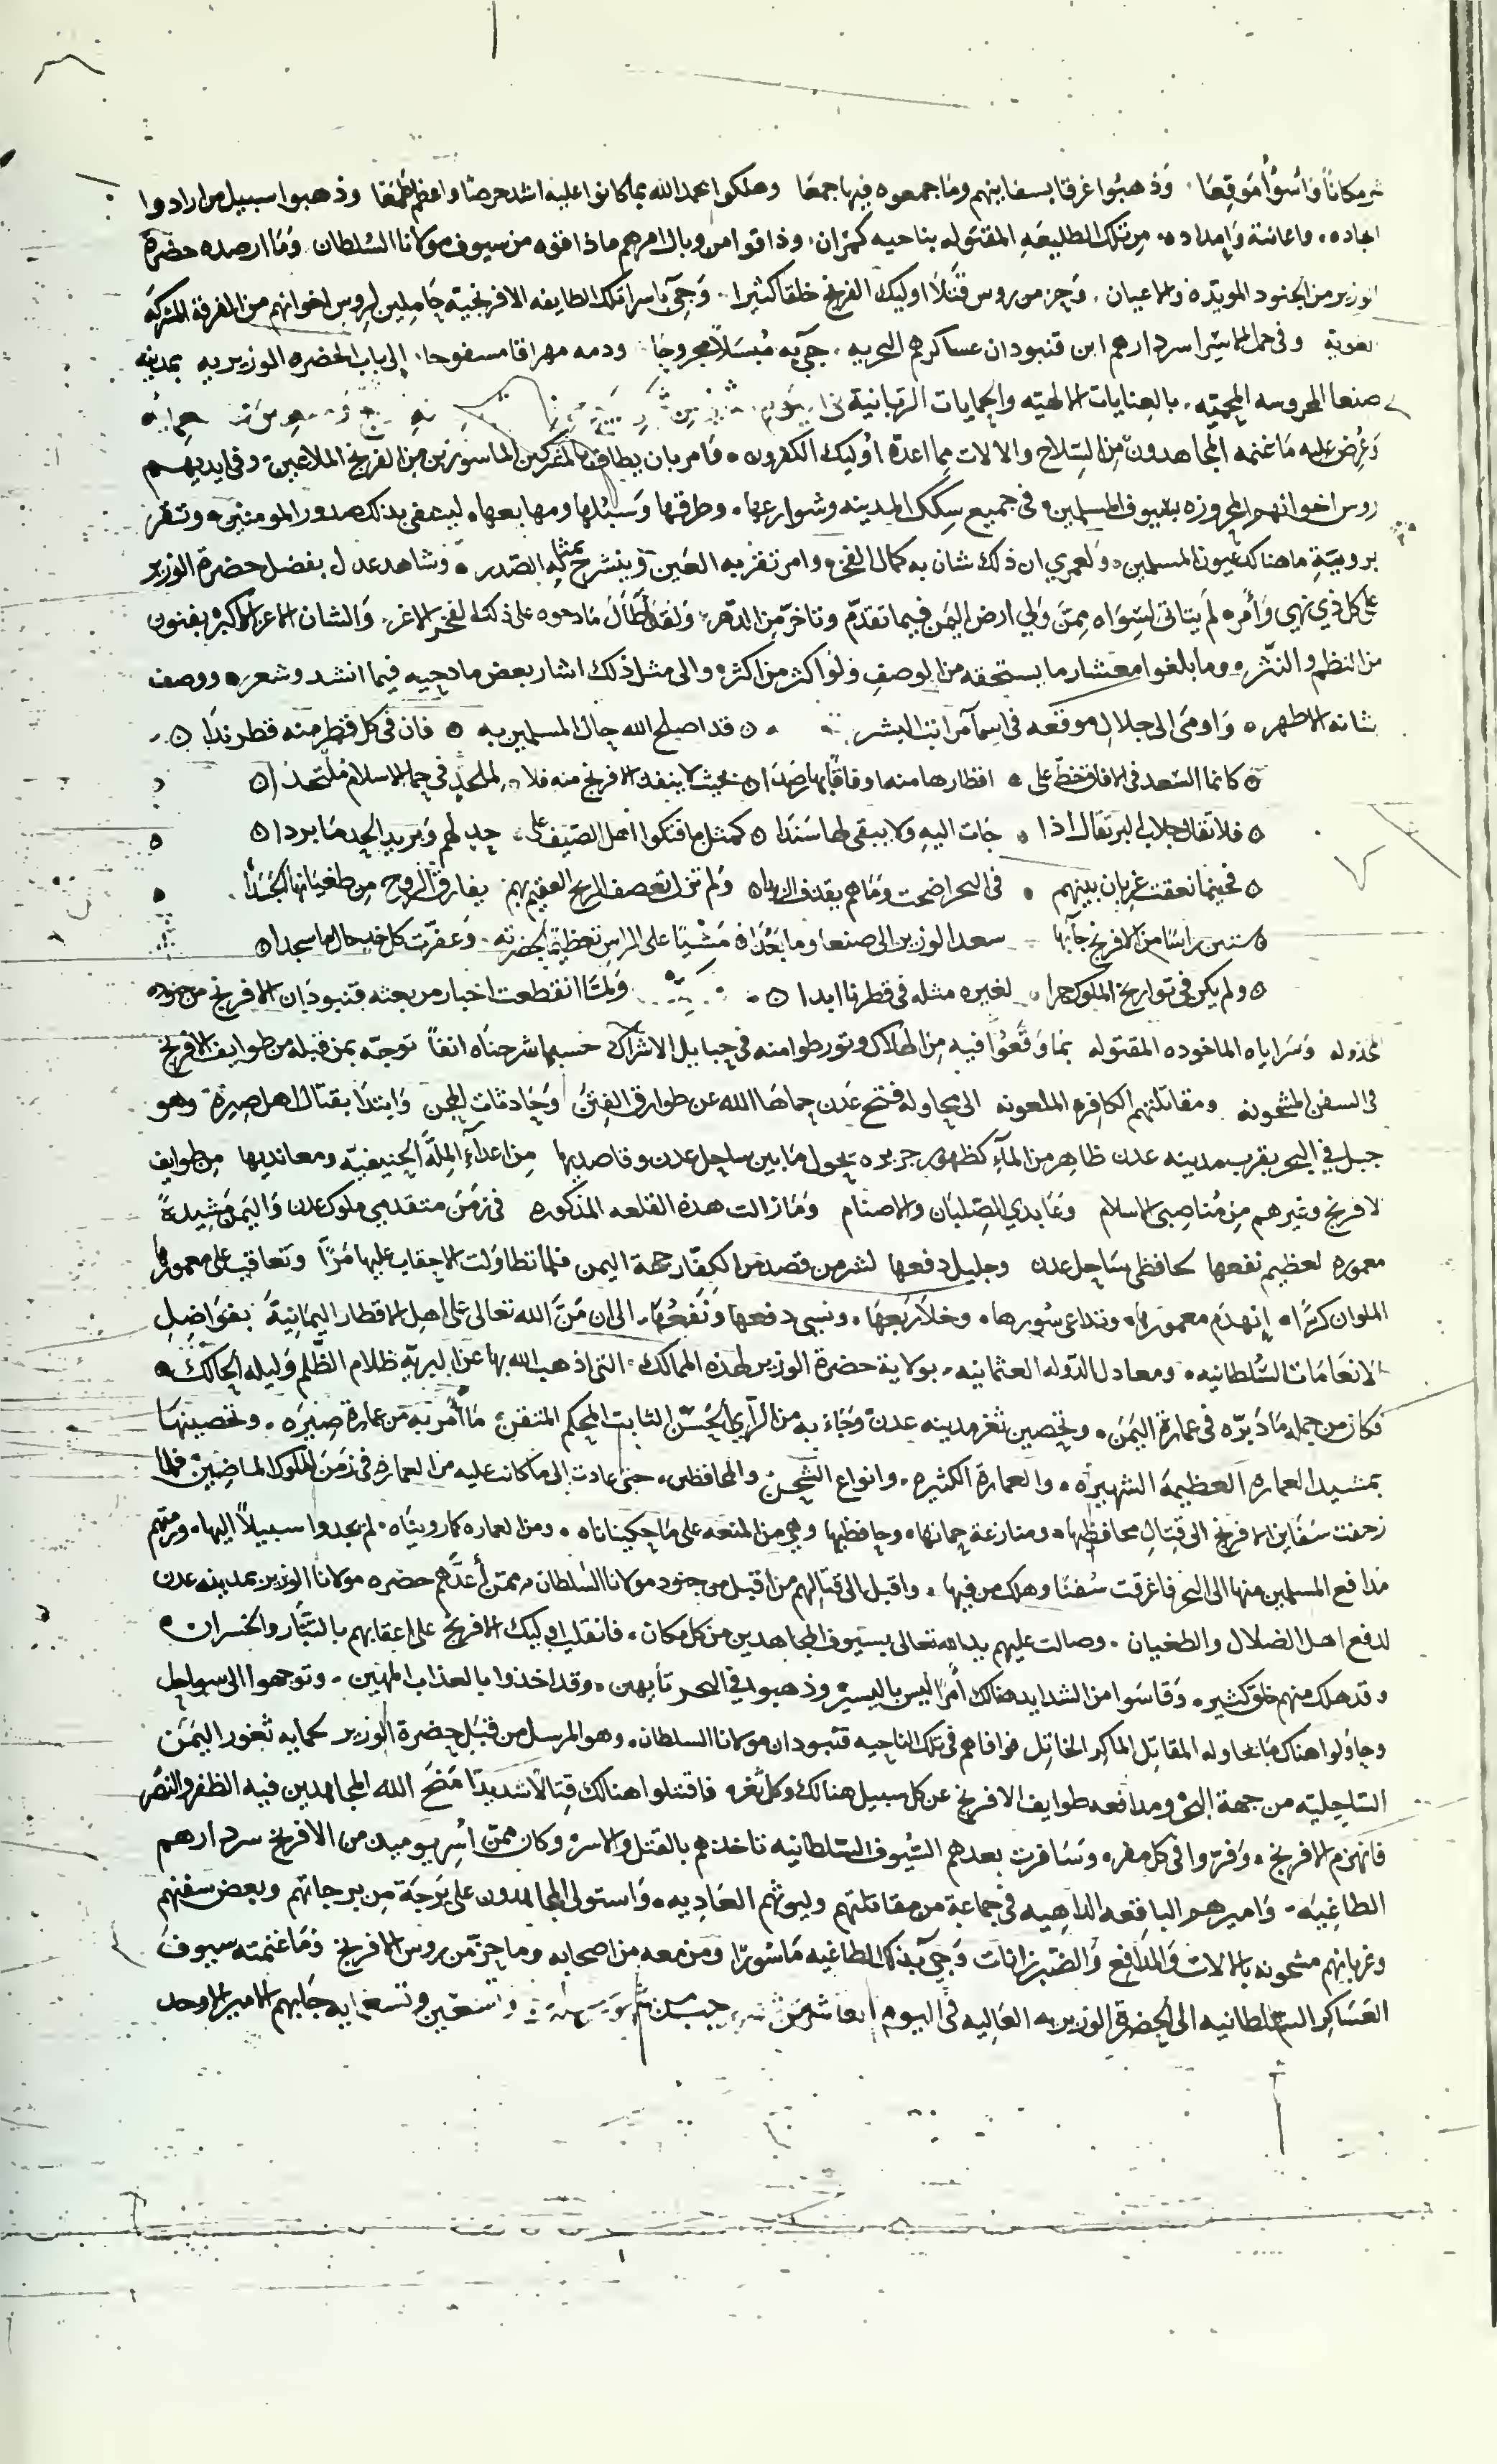 شر مكاناً واسوأ موقعا وذهبوا غرقا بسفاينهم وما جمعوه فيها جمعا وهلكوا بحمد الله بما كانوا عليه اشد حرصا واعظم طمعا وذهبوا سبيل من ارادوا
انجاده واعانته وامداده من تلك الطليعه المقتوله بناحيه كمران وذاقوا من وبال امرهم ما ذاقوه من سيوف مولانا السلطان وما ارصده حضرة
الوزير من الجنود المويده والاعيان وجز من روس قتلا اوليك الفريخ خلقا كثيرا وجئ باسرا تلك الطايفه الافرنجيه حاملين لروس اخوانهم من الفرقة المشركه
وفي جملة الاسرا سردارهم ابن قنبودان عساكرهم البحريه جئ به مبسلاً مجروحا ودمه مهراقا مسفوحا إلى باب الحضره الوزيريه بمدينه
صنعا المحروسه المحميه بالعنايات الالهيه والحمايات الربانية
وعرض عليه ما غنمه المجاهدون من السلاح والالات مما اعدة اوليك الكفرون فامر بان يطاف بالمشركين الماسورين من الفريخ الملاعين وفي ايديهم
روس اخوانهم المجروزه بسيوف المسلمين في جميع سكك المدينه وشوارعها وطرقها وسبلها ومهايعها ليشفى بذلك صدور المومنين وتقر
بروية ما هناك عيون المسلمين ولعمري ان ذلك شان به كمال الفخر وامر تقر به العين وينشرح بمثله الصدر وشاهد عدل بفضل حضرة الوزير
على كل ذي نهي وأمره لم يتاتى لسواه ممن ولي ارض اليمن فيما تقدم وتاخر من الدهر ولقد أطال مادحوه على ذلك الفخر الاغر والشان الاعز الاكبر بفنون
من النظم والنثر وما بلغوا معشار ما يستحقه من الوصف ولو اكثر من اكثر والى مثل ذلك اشار بعض مادحيه فيما انشد وشعر ووصف
شانه الاطهر واومى الى جلال موقعه في اسما مراتب البشر قد اصلح الله حال المسلمين به فان في كل قطر منه قطر ندا
كانما السعد في الافاق خط على اقطارها منه اوفاقا بها رصدا بحيث لا ينفذ الافرنج منه فلا لملحد في حما الاسلام ملتحدا
فلا تقال جلاب البرتقال اذا جات اليه ولا يبقى لها سندا كمثل ما فتكوا اهل الصليف على جد لهم وبريد الجد ما بردا
فحينما نعقت غربان بينهم في البحر اضحت وما هم بقذف الزبدا ولم تزل تعصف الريح العقيم بهم يفارق الروح من طغيانها الجسدا
ستين راسًا من الافرنج جآبها سعد الوزير الى صنعا وما بعدا مشيا على الراس تعظيما لحضرته وعفرت كل خد حال ما سجدا
ولم يكن في تواريخ الملوك جرا لغيره مثله في قطرنا ابدا ولما انقطعت اخبار من بعثه قنبودان الافرنج من جنوده
المخذوله وسراياه الماخوده المقتوله بما وقعوا فيه من الهلاك وتورطوا منه في حبايل الاشراك حسبما شرحناه انفاً توجه بمن قبله من طوايف الافرنج
في السفن المشحونه ومقاتلتهم الكافره الملعونه الى محاولة فتح عدن حماها الله عن طوارق الفتن وحادثات المحن وابتدا بقتال اهل صيرة وهو
جبل في البحر بقرب مدينه عدن ظاهر من الماء كظهور جزيره يحول ما بين ساحل عدن وقاصديها من اعدآء الملة الحنيفيه ومعانديها من طوايف
الافرنج وغيرهم من مناصبي الاسلام وعابدي الصلبان والاصنام وما زالت هذه القلعه المذكوره في زمن متقدمي ملوك عدن واليمن مشيدة
معموره لعظيم نفعها لحافظي ساحل عدن وجليل دفعها لشر من قصد من الكفار جهة اليمن فلما تطاولت الاحقاب عليها مرّاً وتعاقب على معمورها
الملوان كرّاً إنهدم معمورها وتداعى سورها وخلا ربعها ونسي دفعها ونفعها الى ان منّ الله تعالى على اهل الاقطار اليمانية بفواضل
الانعامات السلطانيه ومعادل الدوله العثمانيه بولاية حضرة الوزير لهذه الممالك التي اذهب الله بها عن البريه ظلام الظلم وليله الحالك
فكان من جمله ما دبره في عمارة اليمن وتحصين ثغر مدينه عدن وجاء به من الرأي الحسن الثابت المحكم المتقن ما أمر به من عمارة صيره وتحصينها
بمشيد العماره العظيمة الشهيره والعمارة الكثيره وانواع الشحن والمحافظين حتى عادت إلى ما كانت عليه من العماره في زمن الملوك الماضين فلما
زحفت سفاين الافرنج الى قتال محافظيها ومنازعة حماتها وحافظيها وهي من المنعه على ما حكيناناه ومن العماره كما رويناه لم يجدوا سبيلاً اليها ورمتهم
مدافع المسلمين منها الى البحر فاغرقت سفنا وهلك من فيها واقبل الى قتالهم من اقبل من جنود مولانا السلطان ممن أعدهم حضره مولانا الوزير بمدينه عدن
لدفع اهل الضلال والطغيان وصالت عليهم يد الله تعالى بسيوف المجاهدين من كل مكان فانقلب اوليك الافرنج على اعقابهم بالتبار والخسران
وقد هلك منهم خلق كثير وقاسوا من الشدايد هنالك أمرًا ليس باليسير وذهبوا في البحر تايهين وقد اخذوا بالعذاب المهين وتوجهوا الى سواحل
وحاولوا هناك ما يحاوله المقاتل الماكر الخاتل فوافاهم في تلك الناحيه قنبودان مولانا السلطان وهو المرسل من قبل حضرة الوزير لحمايه ثغور اليمن
الساحليه من جهة البحر ومدافعه طوايف الافرنج عن كل سبيل هنالك وكل ثغره فاقتتلوا هنالك قتالا شديدا منح الله المجاهدين فيه الظفر والنصر
فانهزم الافرنج وفروا في كل مفر وسافرت بعدهم السيوف السلطانيه تاخذهم بالقتل والاسر وكان ممن اسر يوميذ من الافرنج سردارهم
الطاغيه وامیرهم الباقعه الداهيه في جماعة من مقاتلتهم وليوثهم العاديه واستولى المجاهدون على برجة من برجاتهم وبعض سفنهم
وغربانهم مشحونه بالالات والمدافع والضبرزانات وجئ بذلك الطاغيه ماسورا ومن معه من اصحابه وما جز من روس الافرنج وما غنمته سيوف
العساكر السلطانيه الى الحضرة الوزيريه العاليه في اليوم العاشر من شهر وتسعين وتسعمايه جآبهم الامير الاوحد